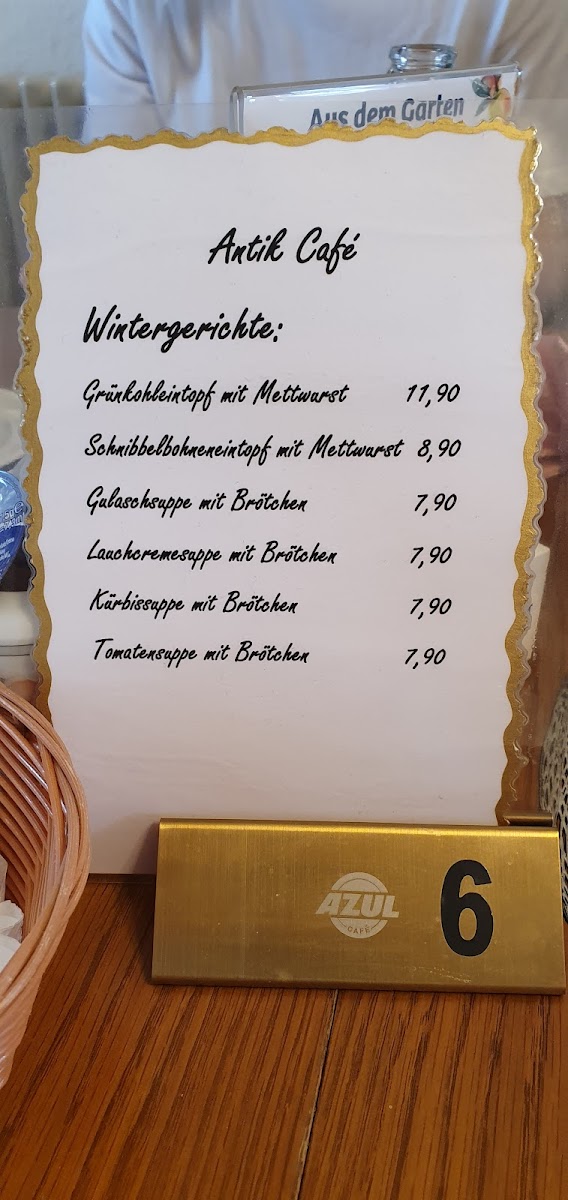 Aus dem Garten
Antik Café
Wintergerichte:
Grünkohleintopf mit Mettwurst 11,90
Schnibbelbohneneintopf mit Mettwurst 8,90
Gulaschsuppe mit Brötchen 7,90
Lauchcremesuppe mit Brötchen 7,90
Kürbissuppe mit Brötchen 7,90
Tomatensuppe mit Brötchen 7,90
AZUL
CAFÉ
6